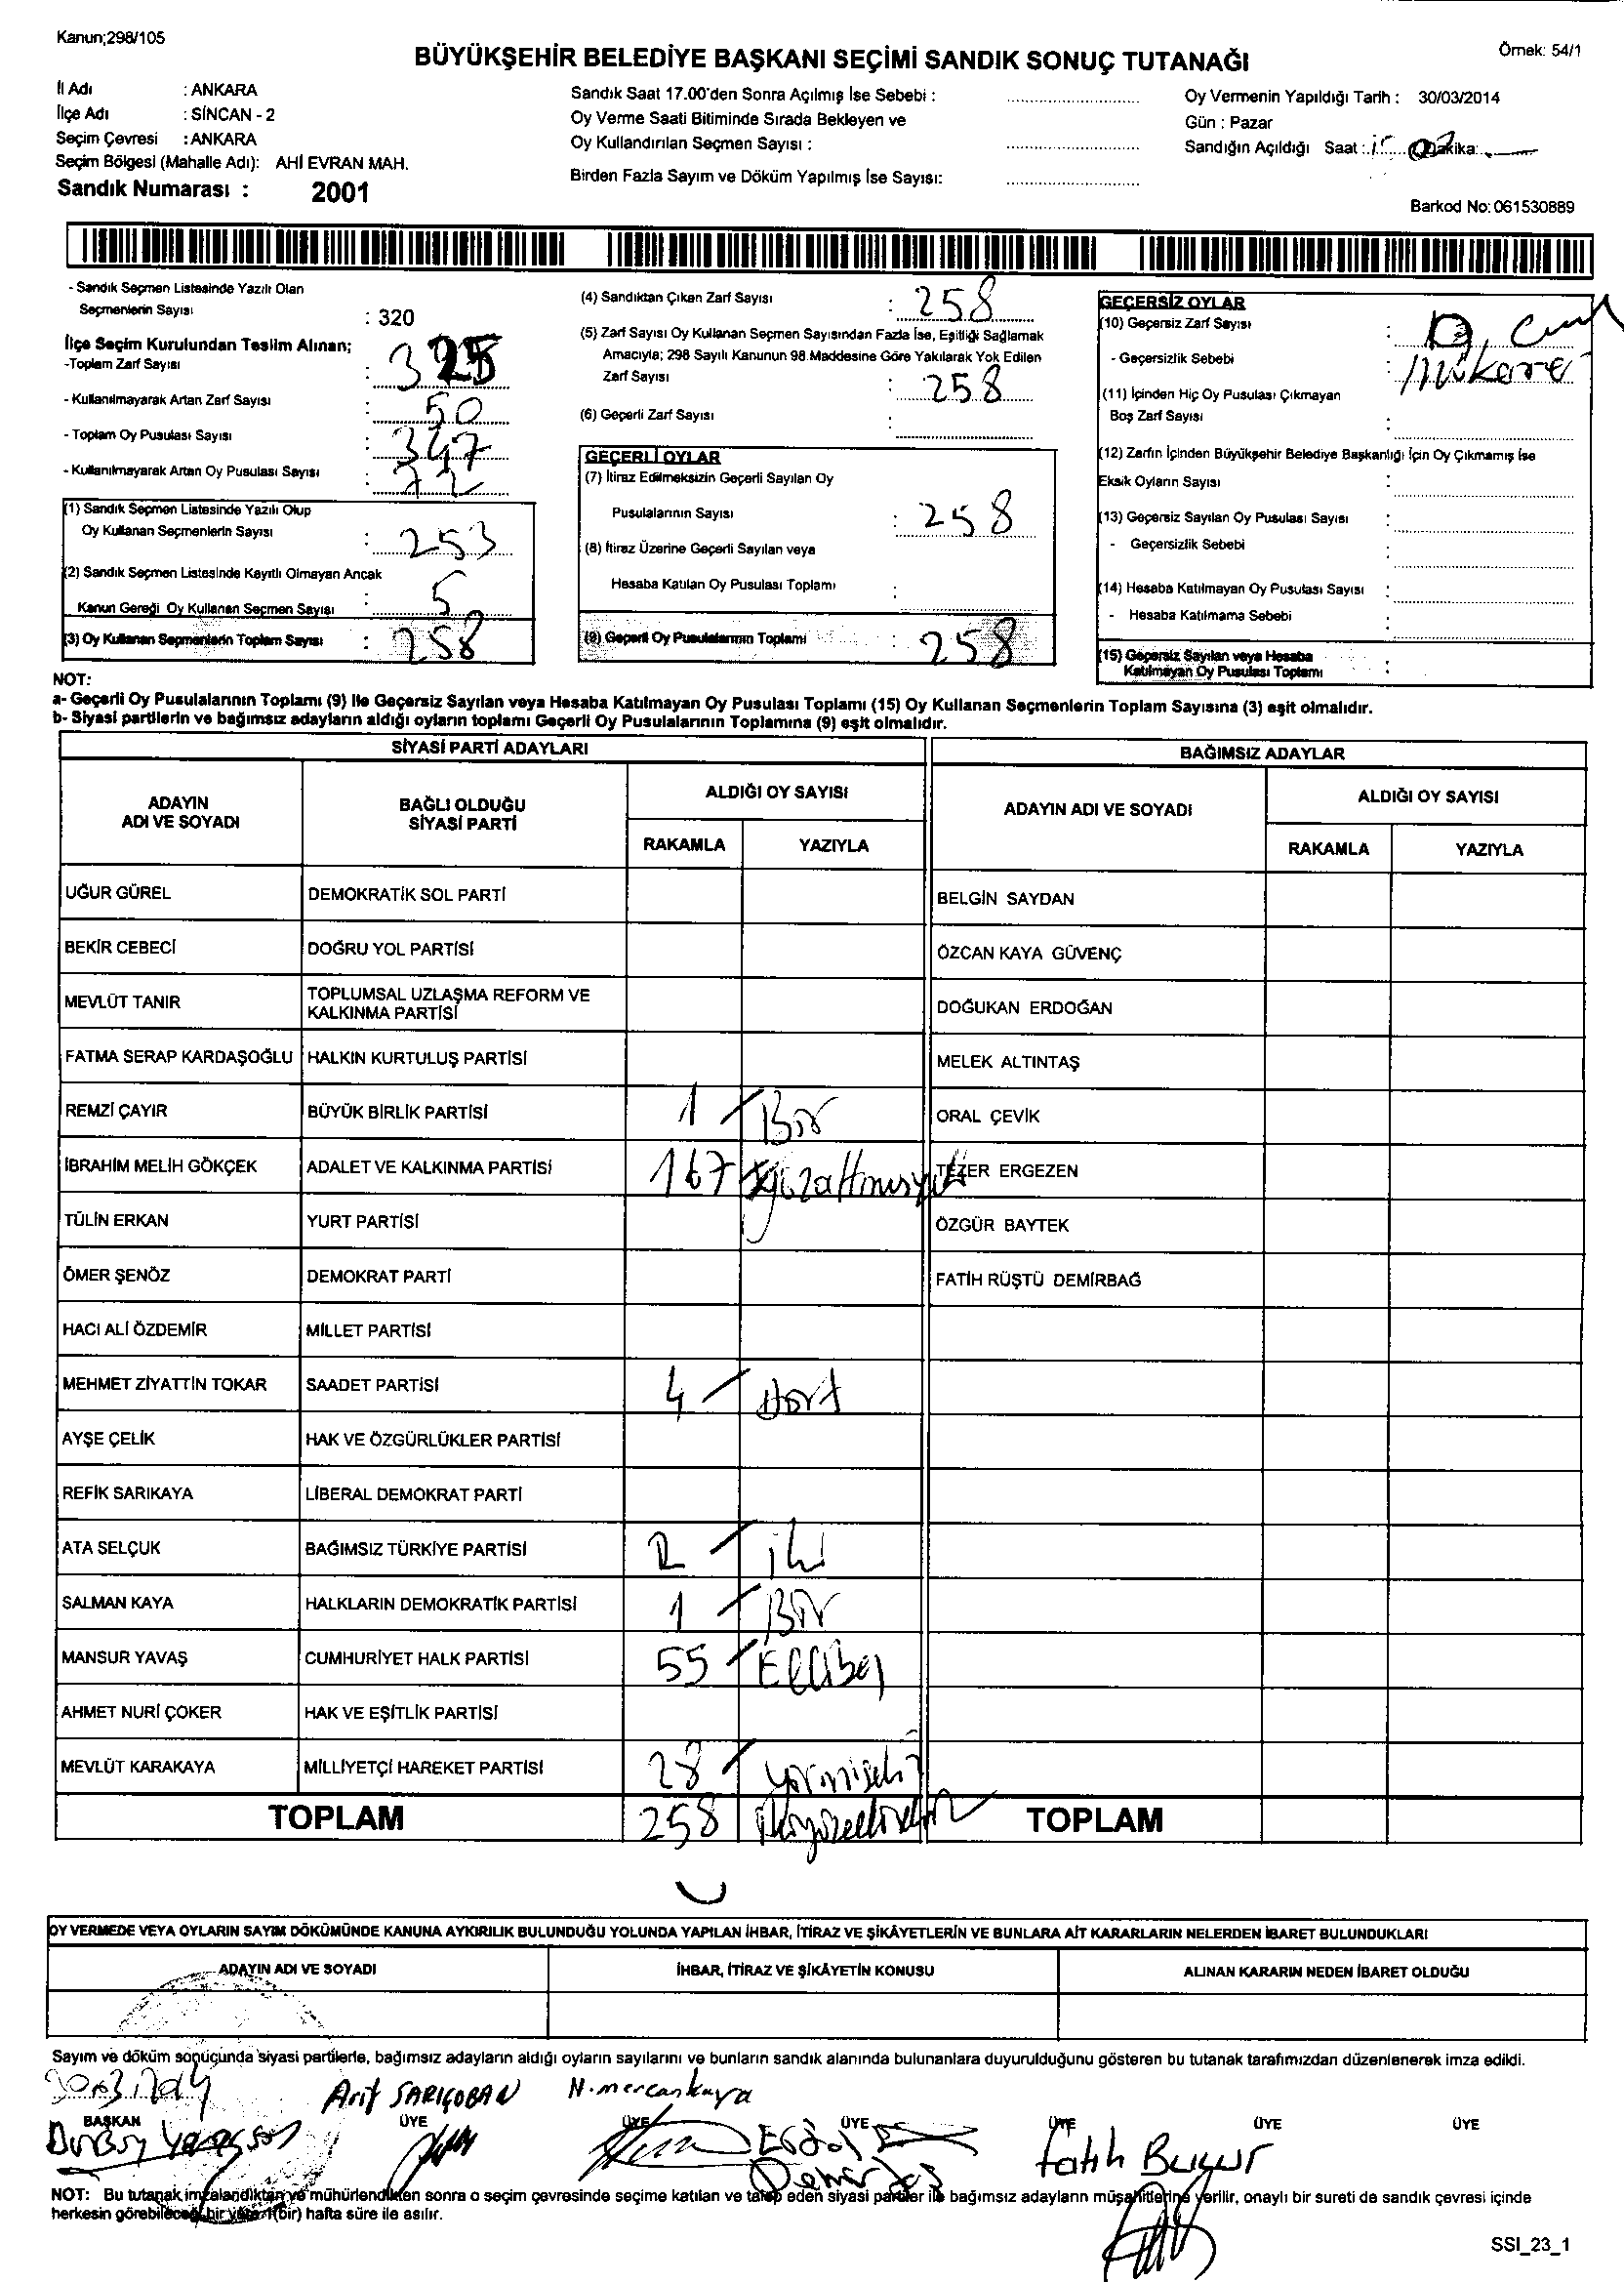 Kanun;298/105
BÜYÜKŞEHİR BELEDİYE BAŞKANI SEÇİMİ SANDIK SONUÇ TUTANAĞI
Örnek: 54/1
İl Adı : ANKARA
İlçe Adı : SİNCAN - 2
Seçim Çevresi : ANKARA
Seçim Bölgesi (Mahalle Adı): AHİ EVRAN MAH.
Sandık Numarası : 2001
Sandık Saat 17.00'den Sonra Açılmış İse Sebebi :
Oy Verme Saati Bitiminde Sırada Bekleyen ve
Oy Kullandırılan Seçmen Sayısı :
Birden Fazla Sayım ve Döküm Yapılmış İse Sayısı:
Oy Vermenin Yapıldığı Tarih : 30/03/2014
Gün : Pazar
Sandığın Açıldığı Saat : Dakika:
Barkod No: 061530889
- Sandık Seçmen Listesinde Yazılı Olan
Seçmenlerin Sayısı : 320
İlçe Seçim Kurulundan Teslim Alınan;
-Toplam Zarf Sayısı : 325
- Kullanılmayarak Artan Zarf Sayısı : 50
- Toplam Oy Pusulası Sayısı : 347
- Kullanılmayarak Artan Oy Pusulası Sayısı : 72
(1) Sandık Seçmen Listesinde Yazılı Olup
Oy Kullanan Seçmenlerin Sayısı : 253
(2) Sandık Seçmen Listesinde Kayıtlı Olmayan Ancak
Kanun Gereği Oy Kullanan Seçmen Sayısı : 5
(3) Oy Kullanan Seçmenlerin Toplam Sayısı : 258
(4) Sandıktan Çıkan Zarf Sayısı : 258
(5) Zarf Sayısı Oy Kullanan Seçmen Sayısından Fazla İse, Eşitliği Sağlamak
Amacıyla; 298 Sayılı Kanunun 98.Maddesine Göre Yakılarak Yok Edilen
Zarf Sayısı : 258
(6) Geçerli Zarf Sayısı :
GEÇERLİ OYLAR
(7) İtiraz Edilmeksizin Geçerli Sayılan Oy
Pusulalarının Sayısı : 258
(8) İtiraz Üzerine Geçerli Sayılan veya
Hesaba Katılan Oy Pusulası Toplamı :
(9) Geçerli Oy Pusulalarının Toplamı : 258
GEÇERSİZ OYLAR
(10) Geçersiz Zarf Sayısı :
- Geçersizlik Sebebi :
(11) İçinden Hiç Oy Pusulası Çıkmayan
Boş Zarf Sayısı :
(12) Zarfın İçinden Büyükşehir Belediye Başkanlığı İçin Oy Çıkmamış İse
Eksik Oyların Sayısı :
(13) Geçersiz Sayılan Oy Pusulası Sayısı :
- Geçersizlik Sebebi :
(14) Hesaba Katılmayan Oy Pusulası Sayısı :
- Hesaba Katılmama Sebebi :
(15) Geçersiz Sayılan veya Hesaba
Katılmayan Oy Pusulası Toplamı :
NOT:
a- Geçerli Oy Pusulalarının Toplamı (9) ile Geçersiz Sayılan veya Hesaba Katılmayan Oy Pusulası Toplamı (15) Oy Kullanan Seçmenlerin Toplam Sayısına (3) eşit olmalıdır.
b- Siyasi partilerin ve bağımsız adayların aldığı oyların toplamı Geçerli Oy Pusulalarının Toplamına (9) eşit olmalıdır.
SİYASİ PARTİ ADAYLARI
BAĞIMSIZ ADAYLAR
ADAYIN ADI VE SOYADI
BAĞLI OLDUĞU SİYASİ PARTİ
ALDIĞI OY SAYISI
RAKAMLA YAZIYLA
ADAYIN ADI VE SOYADI
ALDIĞI OY SAYISI
RAKAMLA YAZIYLA
UĞUR GÜREL DEMOKRATİK SOL PARTİ BELGİN SAYDAN
BEKİR CEBECİ DOĞRU YOL PARTİSİ ÖZCAN KAYA GÜVENÇ
MEVLÜT TANIR TOPLUMSAL UZLAŞMA REFORM VE KALKINMA PARTİSİ DOĞUKAN ERDOĞAN
FATMA SERAP KARDAŞOĞLU HALKIN KURTULUŞ PARTİSİ MELEK ALTINTAŞ
REMZİ ÇAYIR BÜYÜK BİRLİK PARTİSİ 1 / Bir ORAL ÇEVİK
İBRAHİM MELİH GÖKÇEK ADALET VE KALKINMA PARTİSİ 167 yüzaltmışyedi TEZER ERGEZEN
TÜLİN ERKAN YURT PARTİSİ ÖZGÜR BAYTEK
ÖMER ŞENÖZ DEMOKRAT PARTİ FATİH RÜŞTÜ DEMİRBAĞ
HACI ALİ ÖZDEMİR MİLLET PARTİSİ
MEHMET ZİYATTİN TOKAR SAADET PARTİSİ 4 / Dört
AYŞE ÇELİK HAK VE ÖZGÜRLÜKLER PARTİSİ
REFİK SARIKAYA LİBERAL DEMOKRAT PARTİ
ATA SELÇUK BAĞIMSIZ TÜRKİYE PARTİSİ 2 / iki
SALMAN KAYA HALKLARIN DEMOKRATİK PARTİSİ 1 / Bir
MANSUR YAVAŞ CUMHURİYET HALK PARTİSİ 55 / Ellibeş
AHMET NURİ ÇOKER HAK VE EŞİTLİK PARTİSİ
MEVLÜT KARAKAYA MİLLİYETÇİ HAREKET PARTİSİ 28 / yirmisekiz
TOPLAM 258 ikiyüzellisekiz TOPLAM
OY VERMEDE VEYA OYLARIN SAYIM DÖKÜMÜNDE KANUNA AYKIRILIK BULUNDUĞU YOLUNDA YAPILAN İHBAR, İTİRAZ VE ŞİKÂYETLERİN VE BUNLARA AİT KARARLARIN NELERDEN İBARET BULUNDUKLARI
ADAYIN ADI VE SOYADI İHBAR, İTİRAZ VE ŞİKÂYETİN KONUSU ALINAN KARARIN NEDEN İBARET OLDUĞU
Sayım ve döküm sonuçunda siyasi partilerle, bağımsız adayların aldığı oyların sayılarını ve bunların sandık alanında bulunanlara duyurulduğunu gösteren bu tutanak tarafımızdan düzenlenerek imza edildi.
30.03.2014 Arif SARIÇOBAN N. mercankaya
BAŞKAN ÜYE ÜYE ÜYE ÜYE ÜYE ÜYE
Erdal Demirtaş
Fatih
NOT: Bu tutanak imzalandıktan ve mühürlendikten sonra o seçim çevresinde seçime katılan ve talep eden siyasi partiler ile bağımsız adayların müşahitlerine verilir, onaylı bir sureti de sandık çevresi içinde
herkesin görebileceği bir yere 1(bir) hafta süre ile asılır.
SSI_23_1